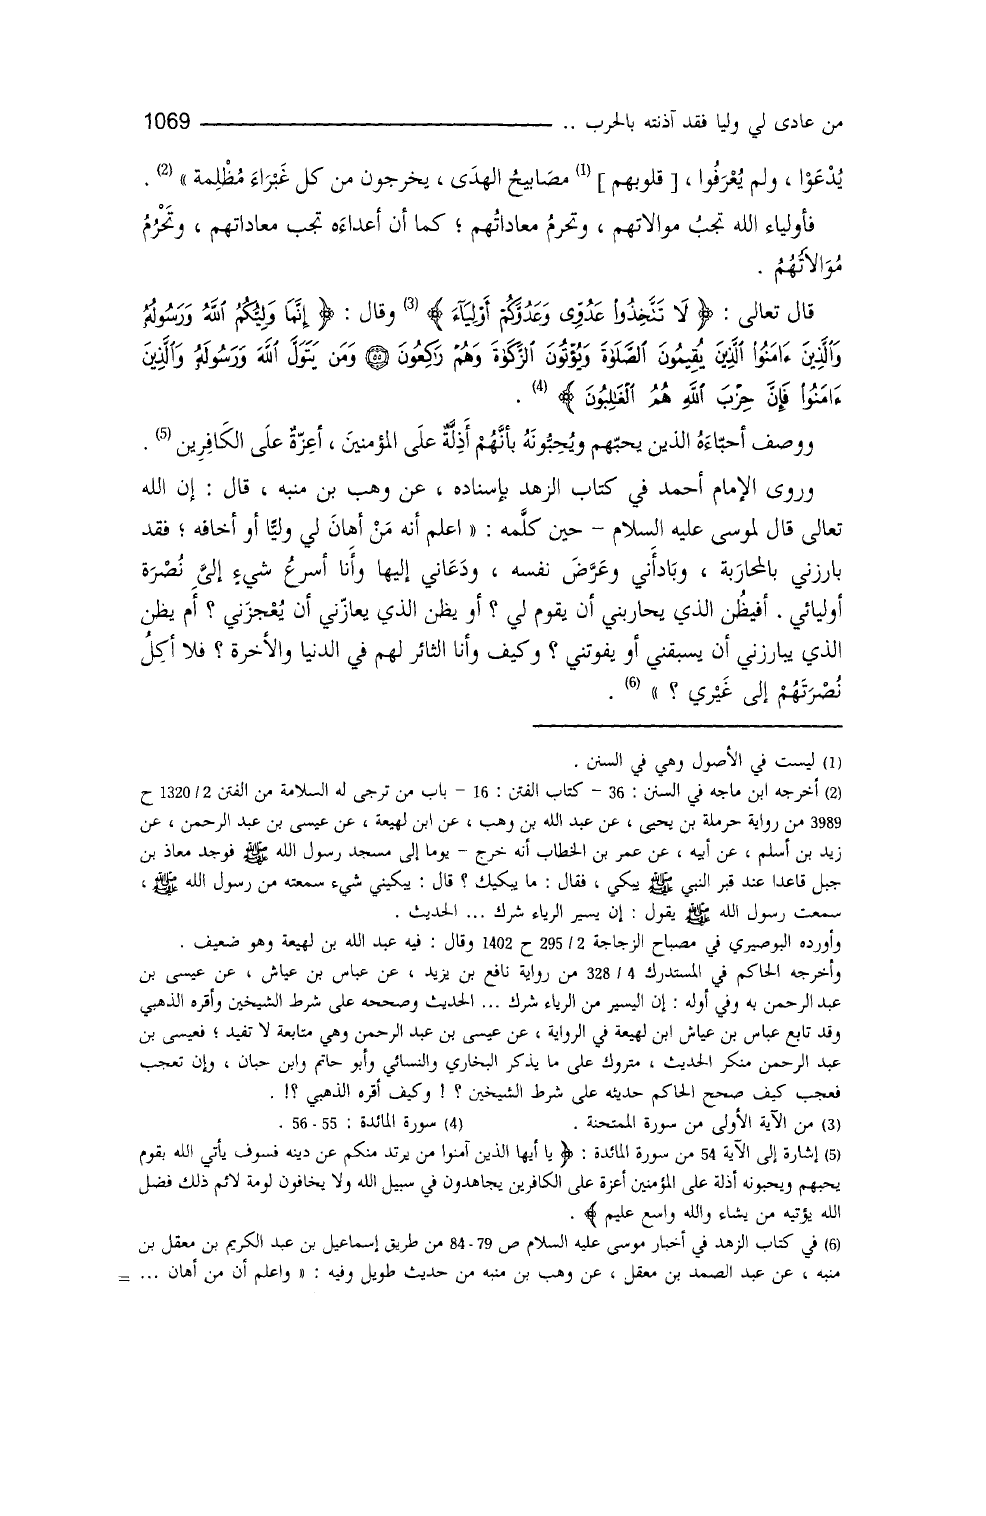 من عادى لي وليا فقد آذنته بالحرب .. 1069
يُدْعَوْا ، ولم يُعْرَفُوا ، [ قلوبهم ] (1) مصَابيحُ الهدَى ، يخرجون من كل غَبْرَاءَ مُظْلِمة » (2) .
فأولياء الله تجبُ موالاتهم ، وتحرمُ معاداتُهم ؛ كما أن أعداءَه تجب معاداتهم ، وتَحْرُمُ
مُوَالاَتُهُمُ .
قال تعالى : ﴿ لَا تَتَّخِذُوا عَدُوِّى وَعَدُوَّكُمْ أَوْلِيَآءَ ﴾ (3) وقال : ﴿ إِنَّمَا وَلِيُّكُمُ ٱللَّهُ وَرَسُولُهُ
وَٱلَّذِينَ ءَامَنُوا ٱلَّذِينَ يُقِيمُونَ ٱلصَّلَوٰةَ وَيُؤْتُونَ ٱلزَّكَوٰةَ وَهُمْ رَٰكِعُونَ ۝٥٥ وَمَن يَتَوَلَّ ٱللَّهَ وَرَسُولَهُ وَٱلَّذِينَ
ءَامَنُوا فَإِنَّ حِزْبَ ٱللَّهِ هُمُ ٱلْغَٰلِبُونَ ﴾ (4) .
ووصف أحبّاءَهُ الذين يحبّهم ويُحِبُّونَهُ بأنَّهُمْ أَذِلَّةٌ علَى المؤمنينَ ، أعِزّةٌ علَى الكَافِرِين (5) .
وروى الإمام أحمد في كتاب الزهد بإسناده ، عن وهب بن منبه ، قال : إن الله
تعالى قال لموسى عليه السلام – حين كلَّمه : « اعلم أنه مَنْ أهانَ لي وليًّا أو أخافه ؛ فقد
بارزني بالمحارَبة ، وبَادأَني وعَرَّضَ نفسه ، ودَعَاني إليها وأَنا أسرعُ شيءٍ إلىَّ نُصْرَة
أوليائي . أفيظُن الذي يحاربني أن يقوم لي ؟ أو يظن الذي يعازّني أن يُعْجزَني ؟ أم يظن
الذي يبارزني أن يسبقني أو يفوتني ؟ وكيف وأنا الثائر لهم في الدنيا والأخرة ؟ فلا أكِلُ
نُصْرَتَهُمْ إلى غَيْري ؟ » (6) .
(1) ليست في الأصول وهي في السنن .
(2) أخرجه ابن ماجه في السنن : 36 – كتاب الفتن : 16 – باب من ترجى له السلامة من الفتن 2 / 1320 ح
3989 من رواية حرملة بن يحيى ، عن عبد الله بن وهب ، عن ابن لهيعة ، عن عيسى بن عبد الرحمن ، عن
زيد بن أسلم ، عن أبيه ، عن عمر بن الخطاب أنه خرج – يوما إلى مسجد رسول الله ﷺ فوجد معاذ بن
جبل قاعدا عند قبر النبي ﷺ يبكي ، فقال : ما يبكيك ؟ قال : يبكيني شيء سمعته من رسول الله ﷺ ،
سمعت رسول الله ﷺ يقول : إن يسير الرياء شرك ... الحديث .
وأورده البوصيري في مصباح الزجاجة 2 / 295 ح 1402 وقال : فيه عبد الله بن لهيعة وهو ضعيف .
وأخرجه الحاكم في المستدرك 4 / 328 من رواية نافع بن يزيد ، عن عباس بن عياش ، عن عيسى بن
عبد الرحمن به وفي أوله : إن اليسير من الرياء شرك ... الحديث وصححه على شرط الشيخين وأقره الذهبي
وقد تابع عباس بن عياش ابن لهيعة في الرواية ، عن عيسى بن عبد الرحمن وهي متابعة لا تفيد ؛ فعيسى بن
عبد الرحمن منكر الحديث ، متروك على ما يذكر البخاري والنسائي وأبو حاتم وابن حبان ، وإن تعجب
فعجب كيف صحح الحاكم حديثه على شرط الشيخين ؟ ! وكيف أقره الذهبي ؟! .
(3) من الآية الأولى من سورة الممتحنة . (4) سورة المائدة : 55 - 56 .
(5) إشارة إلى الآية 54 من سورة المائدة : ﴿ يا أيها الذين آمنوا من يرتد منكم عن دينه فسوف يأتي الله بقوم
يحبهم ويحبونه أذلة على المؤمنين أعزة على الكافرين يجاهدون في سبيل الله ولا يخافون لومة لائم ذلك فضل
الله يؤتيه من يشاء والله واسع عليم ﴾ .
(6) في كتاب الزهد في أخبار موسى عليه السلام ص 79 - 84 من طريق إسماعيل بن عبد الكريم بن معقل بن
منبه ، عن عبد الصمد بن معقل ، عن وهب بن منبه من حديث طويل وفيه : « واعلم أن من أهان ... =